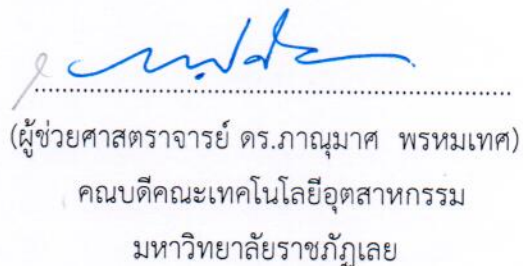 (ผู้ช่วยศาสตราจารย์ ดร.ภาณุมาศ พรหมเทศ)
คณบดีคณะเทคโนโลยีอุตสาหกรรม
มหาวิทยาลัยราชภัฏเลย